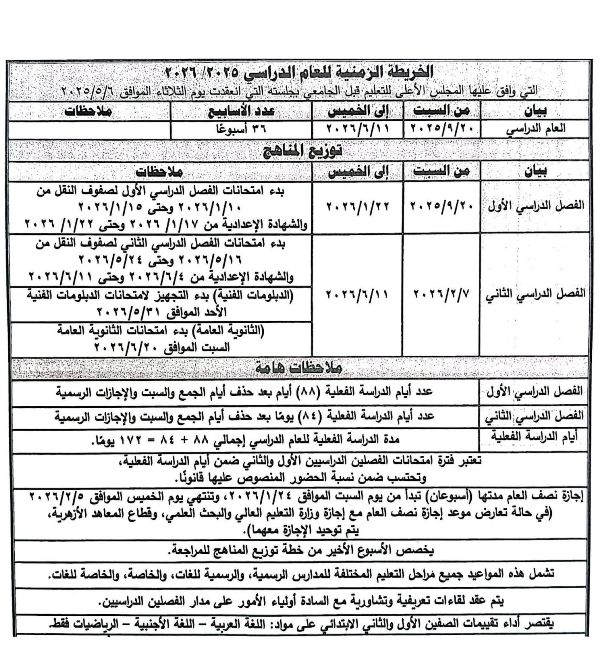 الخريطة الزمنية للعام الدراسي ٢٠٢٥/ ٢٠٢٦
التي وافق عليها المجلس الأعلى للتعليم قبل الجامعي بجلسته التي انعقدت يوم الثلاثاء الموافق ٢٠٢٥/٥/٦
بيان من السبت إلى الخميس عدد الأسابيع ملاحظات
العام الدراسي ٢٠٢٥/٩/٢٠ ٢٠٢٦/٦/١١ ٣٦ أسبوعًا
توزيع المناهج
بيان من السبت إلى الخميس ملاحظات
الفصل الدراسي الأول ٢٠٢٥/٩/٢٠ ٢٠٢٦/١/٢٢
بدء امتحانات الفصل الدراسي الأول لصفوف النقل من
٢٠٢٦/١/١٠ وحتى ٢٠٢٦/١/١٥
والشهادة الإعدادية من ٢٠٢٦/١/١٧ وحتى ٢٠٢٦/١/٢٢
الفصل الدراسي الثاني ٢٠٢٦/٢/٧ ٢٠٢٦/٦/١١
بدء امتحانات الفصل الدراسي الثاني لصفوف النقل من
٢٠٢٦/٥/١٦ وحتى ٢٠٢٦/٥/٢٤
والشهادة الإعدادية من ٢٠٢٦/٦/٤ وحتى ٢٠٢٦/٦/١١
(الدبلومات الفنية) بدء التجهيز لامتحانات الدبلومات الفنية
الأحد الموافق ٢٠٢٦/٥/٣١
(الثانوية العامة) بدء امتحانات الثانوية العامة
السبت الموافق ٢٠٢٦/٦/٢٠
ملاحظات هامة
الفصل الدراسي الأول عدد أيام الدراسة الفعلية (٨٨) أيام بعد حذف أيام الجمع والسبت والإجازات الرسمية
الفصل الدراسي الثاني عدد أيام الدراسة الفعلية (٨٤) يومًا بعد حذف أيام الجمع والسبت والإجازات الرسمية
أيام الدراسة الفعلية مدة الدراسة الفعلية للعام الدراسي إجمالي ٨٨ + ٨٤ = ١٧٢ يومًا.
تعتبر فترة امتحانات الفصلين الدراسيين الأول والثاني ضمن أيام الدراسة الفعلية،
وتحتسب ضمن نسبة الحضور المنصوص عليها قانونًا.
إجازة نصف العام مدتها (أسبوعان) تبدأ من يوم السبت الموافق ٢٠٢٦/١/٢٤، وتنتهي يوم الخميس الموافق ٢٠٢٦/٢/٥
(في حالة تعارض موعد إجازة نصف العام مع إجازة وزارة التعليم العالي والبحث العلمي، وقطاع المعاهد الأزهرية،
يتم توحيد الإجازة معهما).
يخصص الأسبوع الأخير من خطة توزيع المناهج للمراجعة.
تشمل هذه المواعيد جميع مراحل التعليم المختلفة للمدارس الرسمية، والرسمية للغات، والخاصة، والخاصة للغات.
يتم عقد لقاءات تعريفية وتشاورية مع السادة أولياء الأمور على مدار الفصلين الدراسيين.
يقتصر أداء تقييمات الصفين الأول والثاني الابتدائي على مواد: اللغة العربية – اللغة الأجنبية – الرياضيات فقط.